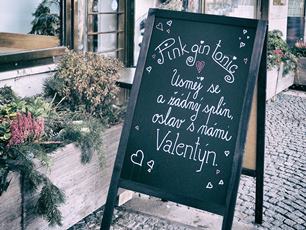 Pink gin tonic
Usměj se
a žádný splín,
oslav s námi
Valentýn.